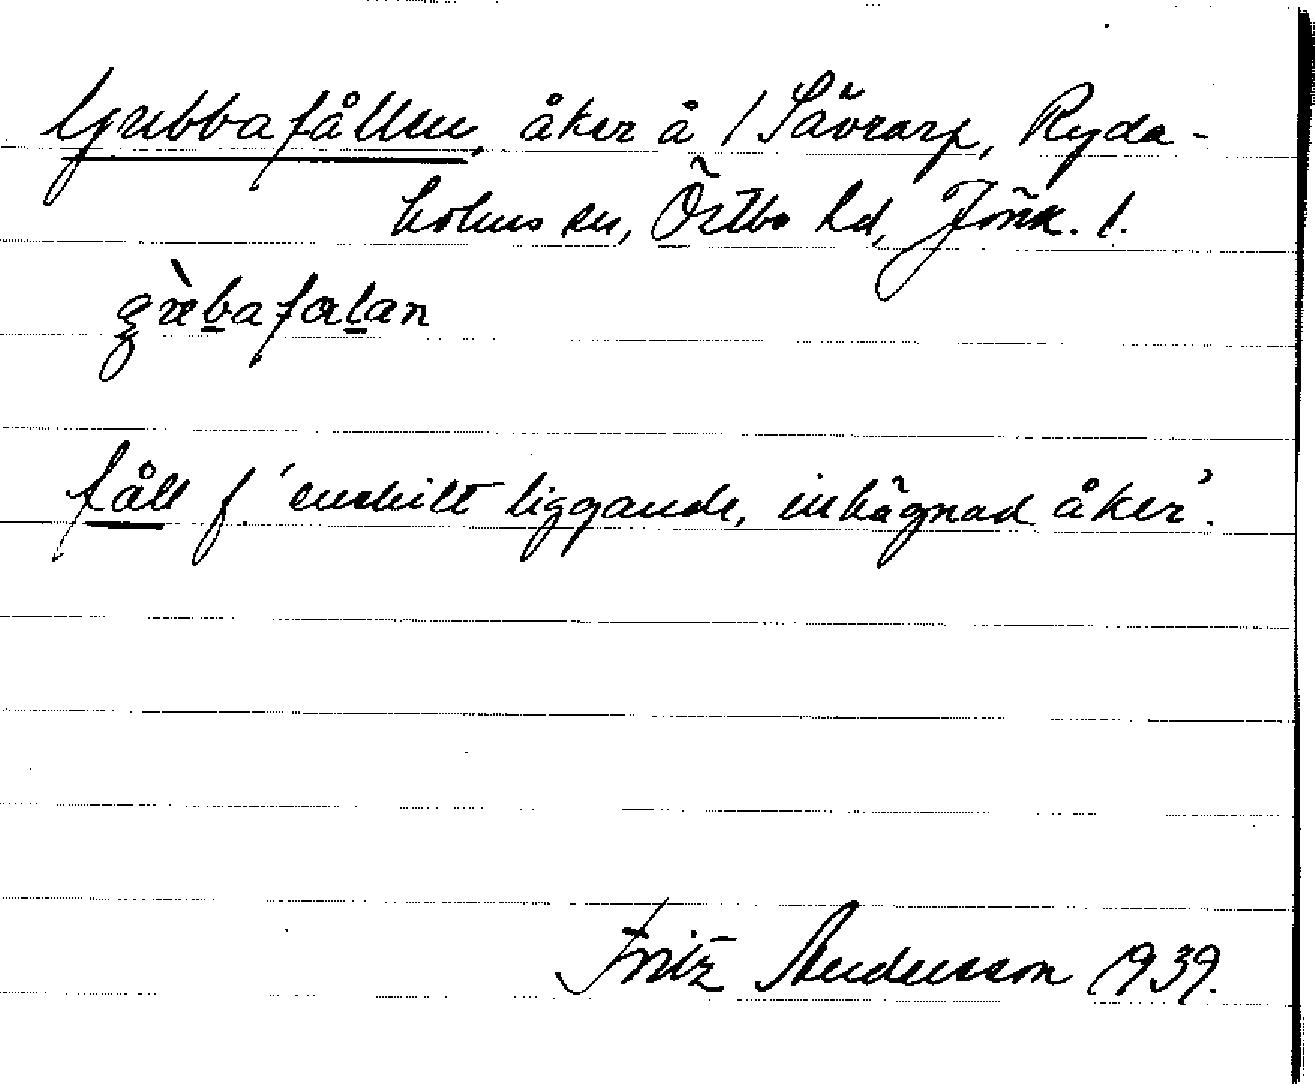 Gubbafållen, åker å / Sävrarp, Ryda-
holms sn, Östbo hd, Jönk. l.
fåll f. 'enskilt liggande, inhägnad åker'.
Fritz Andersson 1939.